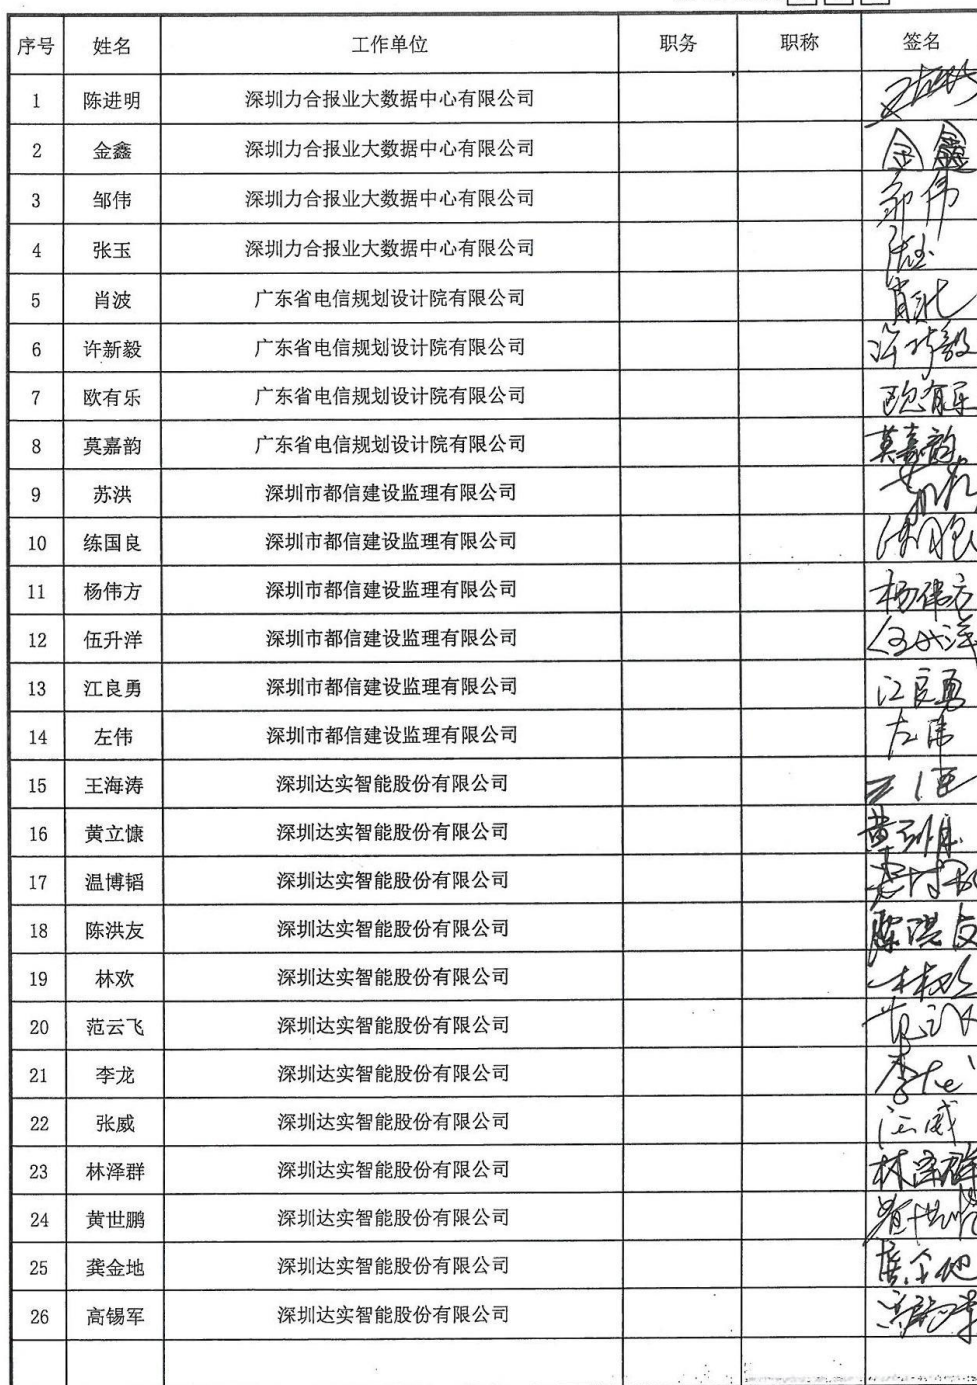 序号 姓名 工作单位 职务 职称 签名
1 陈进明 深圳力合报业大数据中心有限公司
2 金鑫 深圳力合报业大数据中心有限公司 金鑫
3 邹伟 深圳力合报业大数据中心有限公司 邹伟
4 张玉 深圳力合报业大数据中心有限公司
5 肖波 广东省电信规划设计院有限公司
6 许新毅 广东省电信规划设计院有限公司 许新毅
7 欧有乐 广东省电信规划设计院有限公司 欧有乐
8 莫嘉韵 广东省电信规划设计院有限公司 莫嘉韵
9 苏洪 深圳市都信建设监理有限公司
10 练国良 深圳市都信建设监理有限公司
11 杨伟方 深圳市都信建设监理有限公司 杨伟方
12 伍升洋 深圳市都信建设监理有限公司 伍升洋
13 江良勇 深圳市都信建设监理有限公司 江良勇
14 左伟 深圳市都信建设监理有限公司 左伟
15 王海涛 深圳达实智能股份有限公司
16 黄立慷 深圳达实智能股份有限公司
17 温博韬 深圳达实智能股份有限公司
18 陈洪友 深圳达实智能股份有限公司 陈洪友
19 林欢 深圳达实智能股份有限公司 林欢
20 范云飞 深圳达实智能股份有限公司
21 李龙 深圳达实智能股份有限公司 李龙
22 张威 深圳达实智能股份有限公司 张威
23 林泽群 深圳达实智能股份有限公司 林泽群
24 黄世鹏 深圳达实智能股份有限公司
25 龚金地 深圳达实智能股份有限公司 龚金地
26 高锡军 深圳达实智能股份有限公司